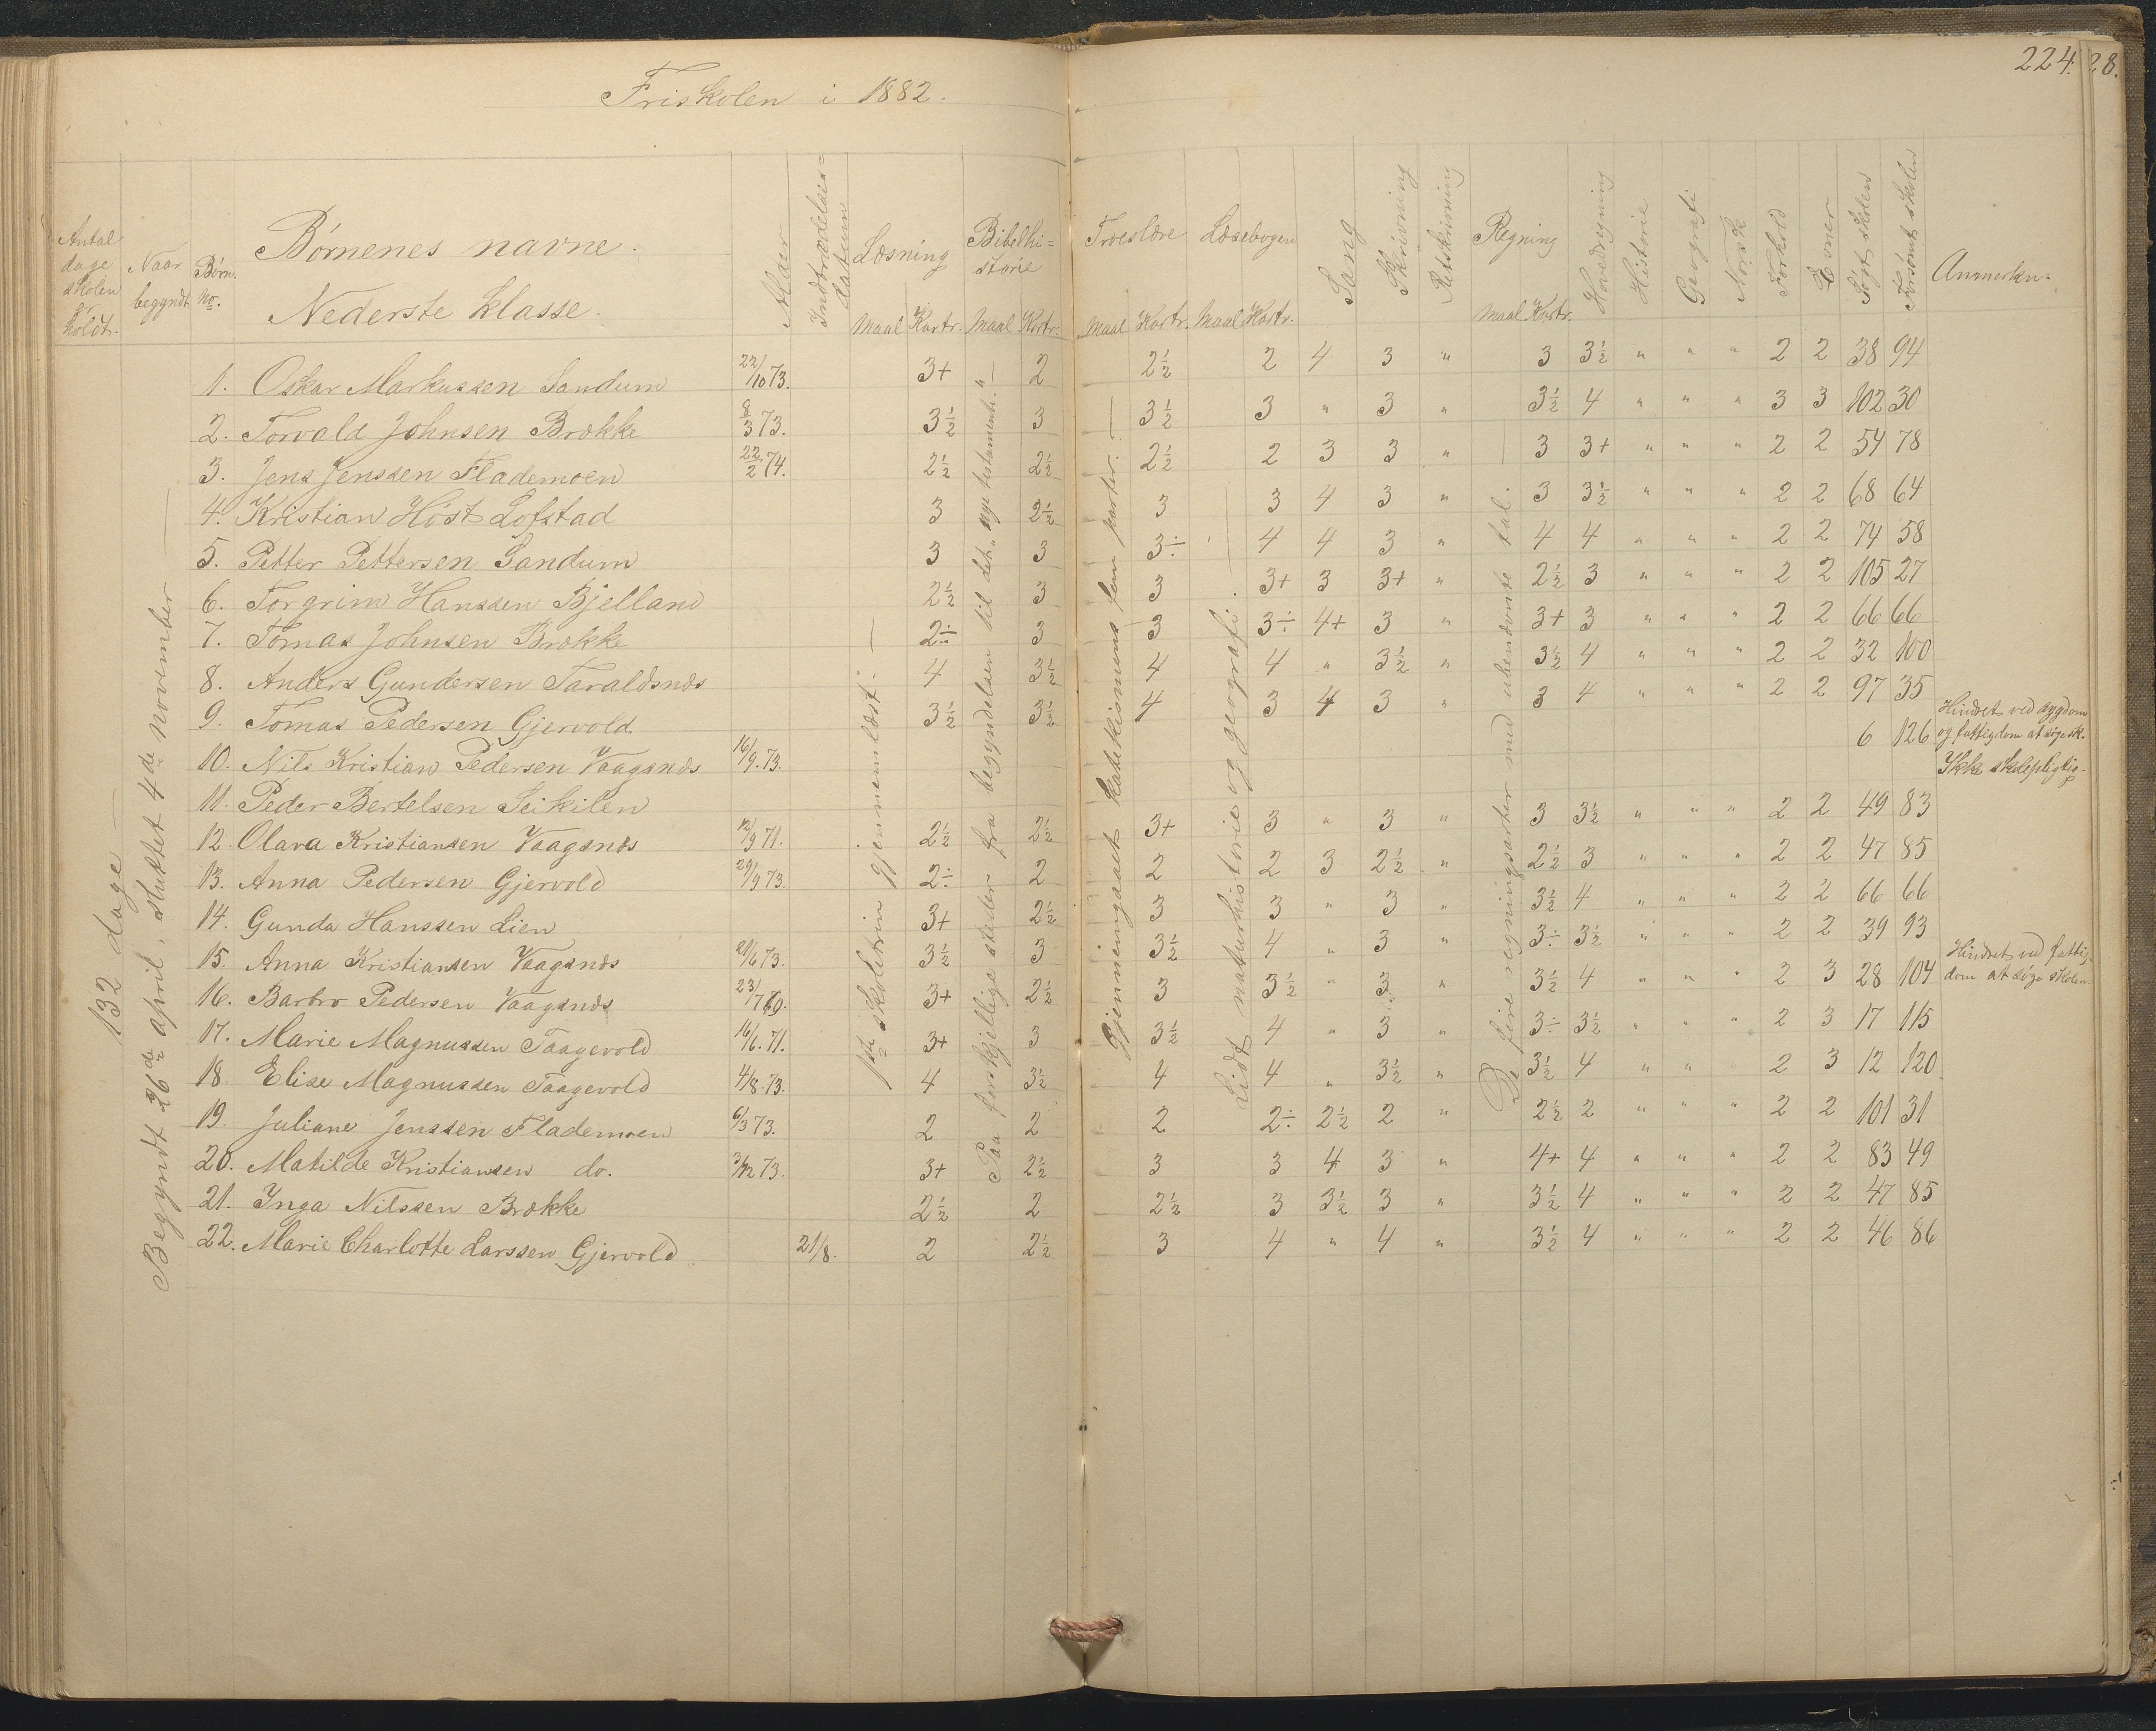 224. 28.
Friskolen i 1882.
Antal dage skolen holdt.
Naar begyndt.
Børn. No.
Børnenes navne.
Nederste klasse.
Alder
Indtrædelses= datum
Læsning
Maal Kartr.
Bibelhi= storie
Maal Kartr.
Troeslære
Maal Kartr.
Læsebogen
Maal Kartr.
Sang
Skrivning
Retskrivning
Regning
Maal Kartr.
Hovedregning
Historie
Geografi
Norsk
Forhold
Evner
Søgt skolen
Forsømt skolen
Anmerkn.
132 dage
Begyndt 26de april, sluttet 4de november
1ste skoletrin gjennemlæst.
Paa forskjellige steder fra begyndelsen til det „nye testamente.“
Gjennemgaaet katekismens fem parter.
Lidt naturhistorie og geografi.
De fire regningsarter med ubenævnte tal.
1. Oskar Markussen Sandum 22/10 73. 3+ 2 2½ 2 4 3 " 3 3½ " " " 2 2 38 94
2. Torvald Johnsen Brække 8/3 73. 3½ 3 3½ 3 " 3 " 3½ 4 " " " 3 3 102 30
3. Jens Jenssen Flademoen 22/2 74. 2½ 2½ 2½ 2 3 3 " 3 3+ " " " 2 2 54 78
4. Kristian Høst Lofstad 3 2½ 3 3 4 3 " 3 3½ " " " 2 2 68 64
5. Petter Pettersen Sandum 3 3 3÷ 4 4 3 " 4 4 " " " 2 2 74 58
6. Torgrim Hanssen Bjelland 2½ 3 3 3+ 3 3+ " 2½ 3 " " " 2 2 105 27
7. Tomas Johnsen Brække 2÷ 3 3 3÷ 4+ 3 " 3+ 3 " " " 2 2 66 66
8. Anders Gundersen Taraldsnæs 4 3½ 4 4 " 3½ " 3½ 4 " " " 2 2 32 100
9. Tomas Pedersen Gjervold 3½ 3½ 4 3 4 3 " 3 4 " " " 2 2 97 35
10. Nils Kristian Pedersen Vaagsnæs 16/9. 73. 6 126 Hindret ved sygdom og fattigdom at søge sk.
11. Peder Bertelsen Seikilen Ikke skolepligtig.
12. Olava Kristiansen Vaagsnæs 12/9 71. 2½ 2½ 3+ 3 " 3 " 3 3½ " " " 2 2 49 83
13. Anna Pedersen Gjervold 29/9 73. 2÷ 2 2 2 3 2½ " 2½ 3 " " " 2 2 47 85
14. Gunda Hanssen Lien 3+ 2½ 3 3 " 3 " 3½ 4 " " " 2 2 66 66
15. Anna Kristiansen Vaagsnæs 21/6 73. 3½ 3 3½ 4 " 3 " 3÷ 3½ " " " 2 2 39 93
16. Barbro Pedersen Vaagsnæs 23/7 69. 3+ 2½ 3 3½ " 3 " 3½ 4 " " " 2 3 28 104 Hindret ved fattig- dom at søge skolen.
17. Marie Magnussen Taagevold 16/6. 71. 3+ 3 3½ 4 " 3 " 3÷ 3½ " " " 2 3 17 115
18. Elise Magnussen Taagevold 4/8. 73. 4 3½ 4 4 " 3½ " 3½ 4 " " 2 3 12 120
19. Juliane Jenssen Flademoen 6/3 73. 2 2 2 2÷ 2½ 2 " 2½ 2 " " " 2 2 101 31
20. Matilde Kristiansen do. 3/12 73. 3+ 2½ 3 3 4 3 " 4+ 4 " " " 2 2 83 49
21. Inga Nilssen Brække 2½ 2 2½ 3 3½ 3 " 3½ 4 " " " 2 2 47 85
22. Marie Charlotte Larssen Gjervold 21/8. 2 2½ 3 4 " 4 " 3½ 4 " " " 2 2 46 86